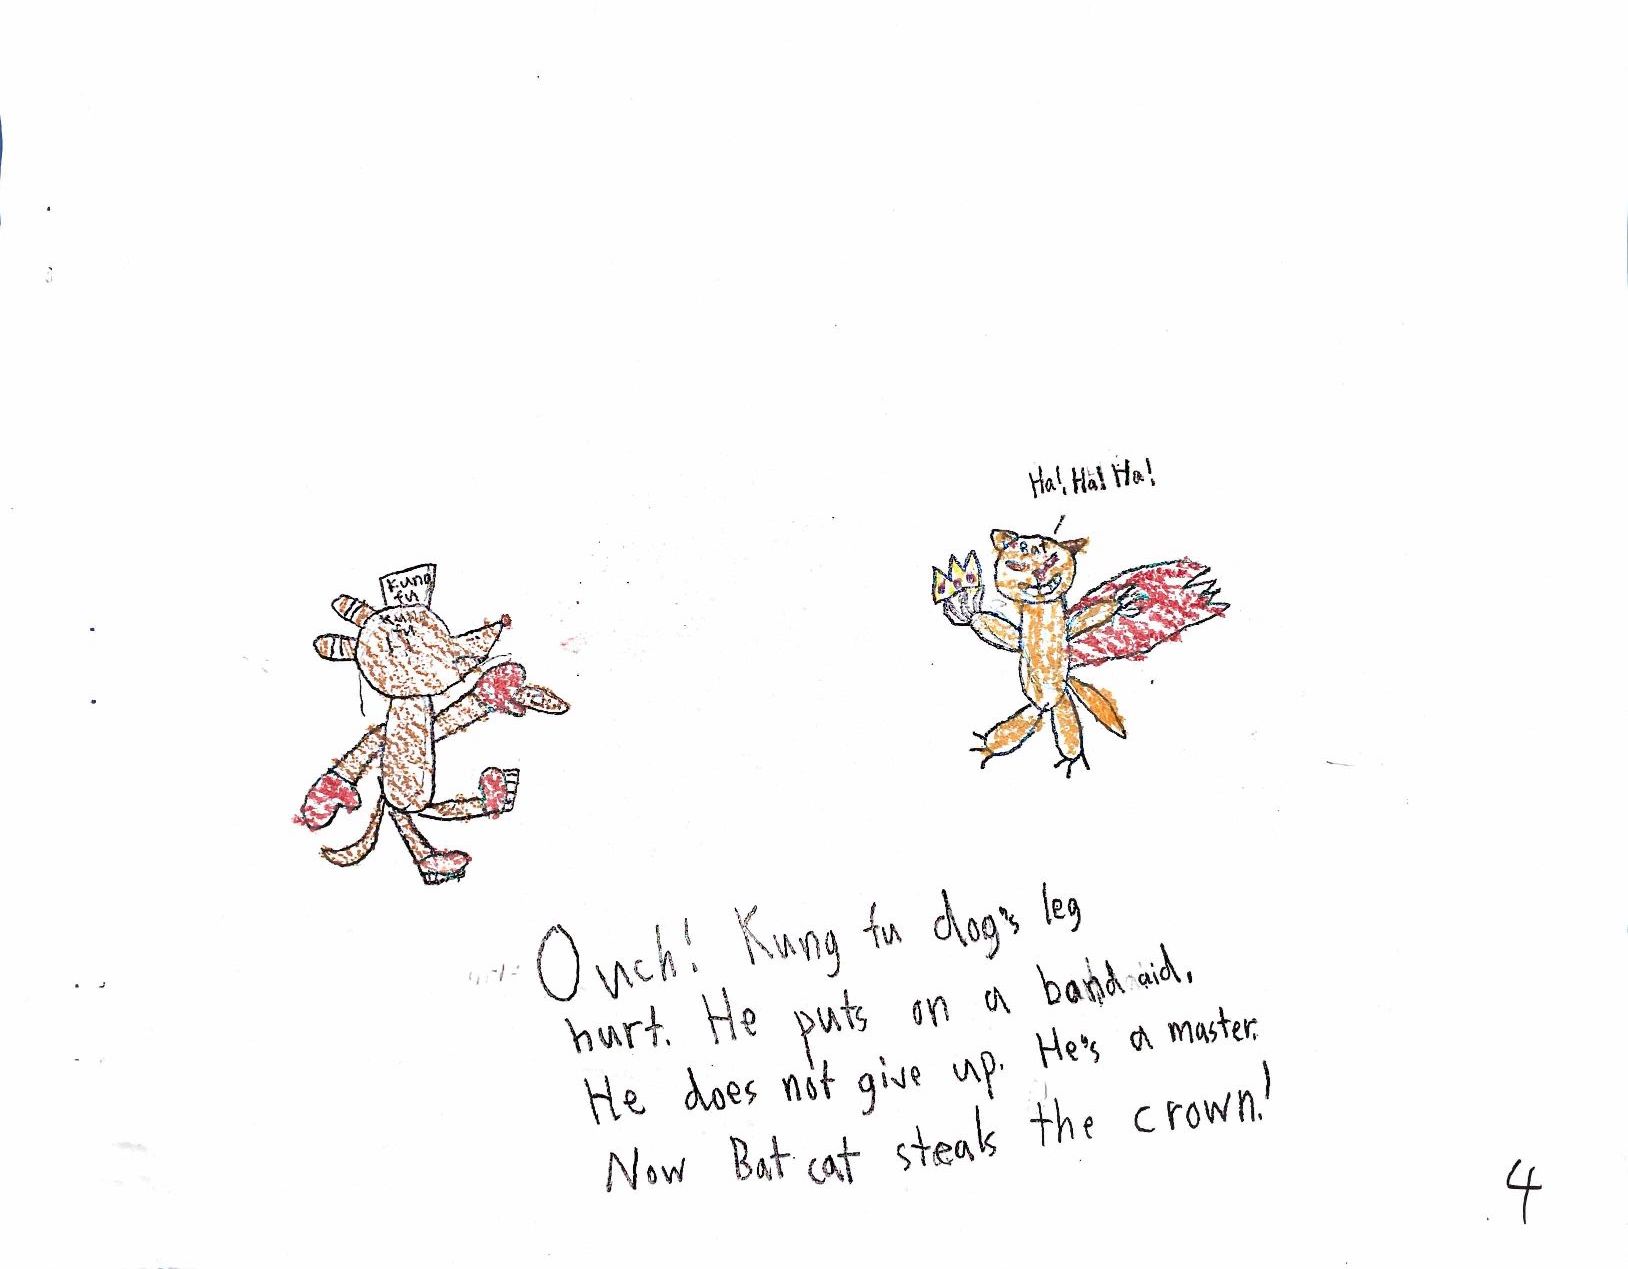 Ha! Ha! Ha!
Bat
Kung
fu
Kung
fu
Ouch! Kung fu dog's leg
hurt. He puts on a band aid.
He does not give up. He's a master.
Now Bat cat steals the crown!
4